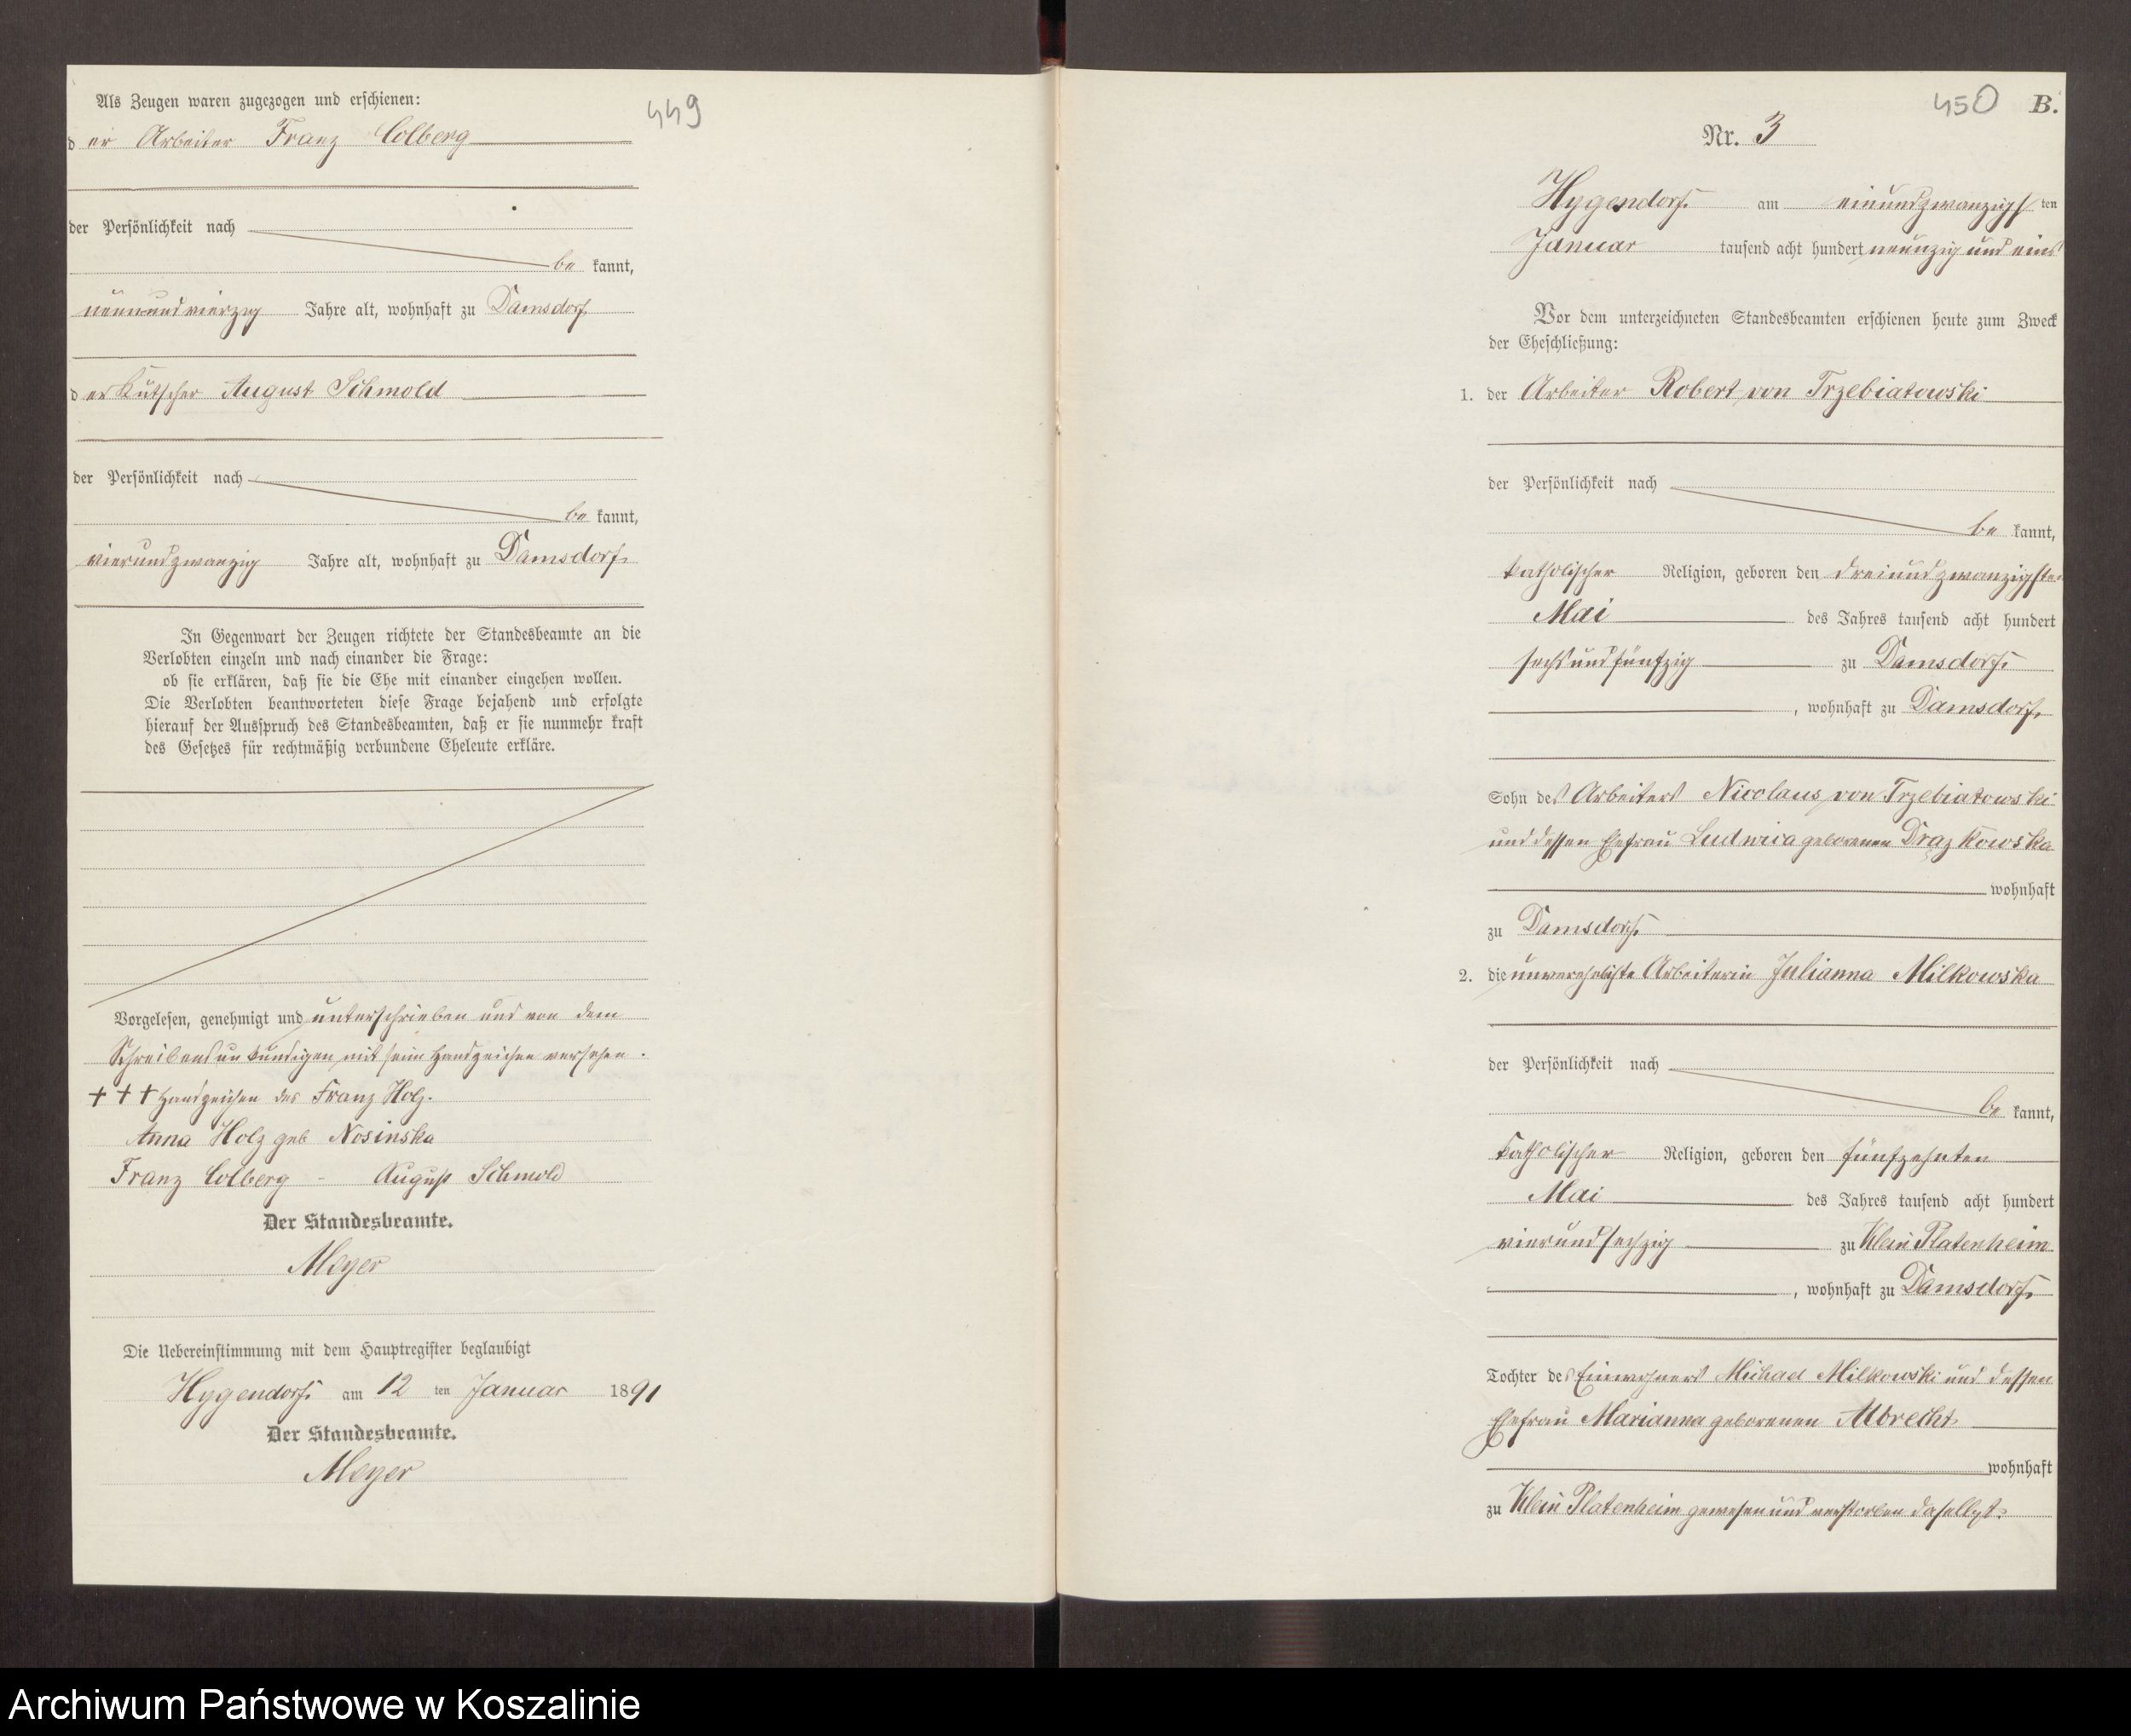 449
Als Zeugen waren zugezogen und erschienen:
der Arbeiter Franz Colberg
der Persönlichkeit nach
bekannt,
neunundvierzig Jahre alt, wohnhaft zu Damsdorf
der Kutscher August Schmold
der Persönlichkeit nach
bekannt,
vierundzwanzig Jahre alt, wohnhaft zu Damsdorf.
In Gegenwart der Zeugen richtete der Standesbeamte an die
Verlobten einzeln und nach einander die Frage:
ob sie erklären, daß sie die Ehe mit einander eingehen wollen.
Die Verlobten beantworteten diese Frage bejahend und erfolgte
hierauf der Ausspruch des Standesbeamten, daß er sie nunmehr kraft
des Gesetzes für rechtmäßig verbundene Eheleute erkläre.
Vorgelesen, genehmigt und unterschrieben und von dem
Schreibensunkundigen mit seim Handzeichen versehen.
+++ Handzeichen des Franz Holz.
Anna Holz geb Nosinska
Franz Colberg - August Schmold
Der Standesbeamte.
Meyer
Die Uebereinstimmung mit dem Hauptregister beglaubigt
Hygendorf am 12ten Januar 1891
Der Standesbeamte.
Meyer
450 B.
Nr. 3
Hygendorf am einundzwanzigsten
Januar tausend acht hundert neunzig und eins
Vor dem unterzeichneten Standesbeamten erschienen heute zum Zweck
der Eheschließung:
1. der Arbeiter Robert von Trzebiatowski
der Persönlichkeit nach
bekannt,
katholischer Religion, geboren den dreiundzwanzigsten
Mai des Jahres tausend acht hundert
sechsundfünfzig zu Damsdorf.
, wohnhaft zu Damsdorf.
Sohn des Arbeiters Nicolaus von Trzebiatowski
und dessen Ehefrau Ludwica geborenen Drazkowska
wohnhaft
zu Damsdorf.
2. die unverehelichte Arbeiterin Julianna Milkowska
der Persönlichkeit nach
bekannt,
katholischer Religion, geboren den fünfzehnten
Mai des Jahres tausend acht hundert
vierundsechzig zu Klein Platenheim
, wohnhaft zu Damsdorf.
Tochter des Einwohners Michael Milkowski und dessen
Ehefrau Marianna geborenen Albrecht
wohnhaft
zu Klein Platenheim gewesen und verstorben daselbst.
Archiwum Państwowe w Koszalinie